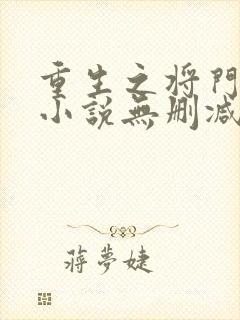 重生之将門
小說無删减
蔣夢婕